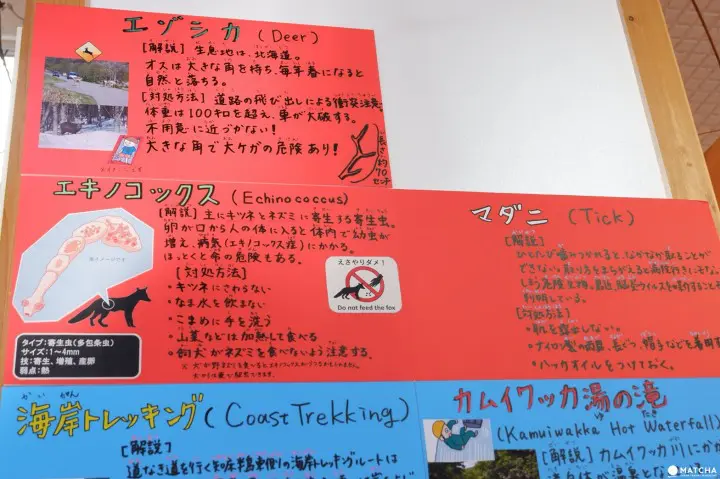 エゾシカ (Deer)
[解説] 生息地は、北海道。
オスは大きな角を持ち、毎年春になると
自然と落ちる。
[対処方法] 道路の飛び出しによる衝突注意。
体重は100キロを超え、車が大破する。
不用意に近づかない!
大きな角で大ケガの危険あり!
長さ約70センチ
エキノコックス (Echinococcus)
[解説] 主にキツネとネズミに寄生する寄生虫。
卵が口から人の体に入ると体内で幼虫が
増え、病気(エキノコックス症)にかかる。
ほっとくと命の危険もある。
[対処方法]
・キツネにさわらない
・なま水を飲まない
・こまめに手を洗う
・山菜などは加熱して食べる
・飼犬がネズミを食べないよう注意する。
※イメージです
タイプ:寄生虫(多包条虫)
サイズ:1〜4mm
技:寄生、増殖、産卵
弱点:熱
えさやりダメ!
Do not feed the fox
マダニ (Tick)
[解説]
ひとたび噛みつかれると、なかなか取ることが
できない。
判明している。
[対処方法]
・肌を露出しない。
・ナイロン製の雨具、長ぐつ、帽子などを着用す
・ハッカオイルをつけておく。
かいがん
海岸トレッキング (Coast Trekking)
[解説]
道なき道を行く知床半島東側の海岸トレッキングルートは
カムイワッカ湯の滝
(Kamuiwakka Hot Waterfall)
[解説] カムイワッカ川にかか
MATCHA